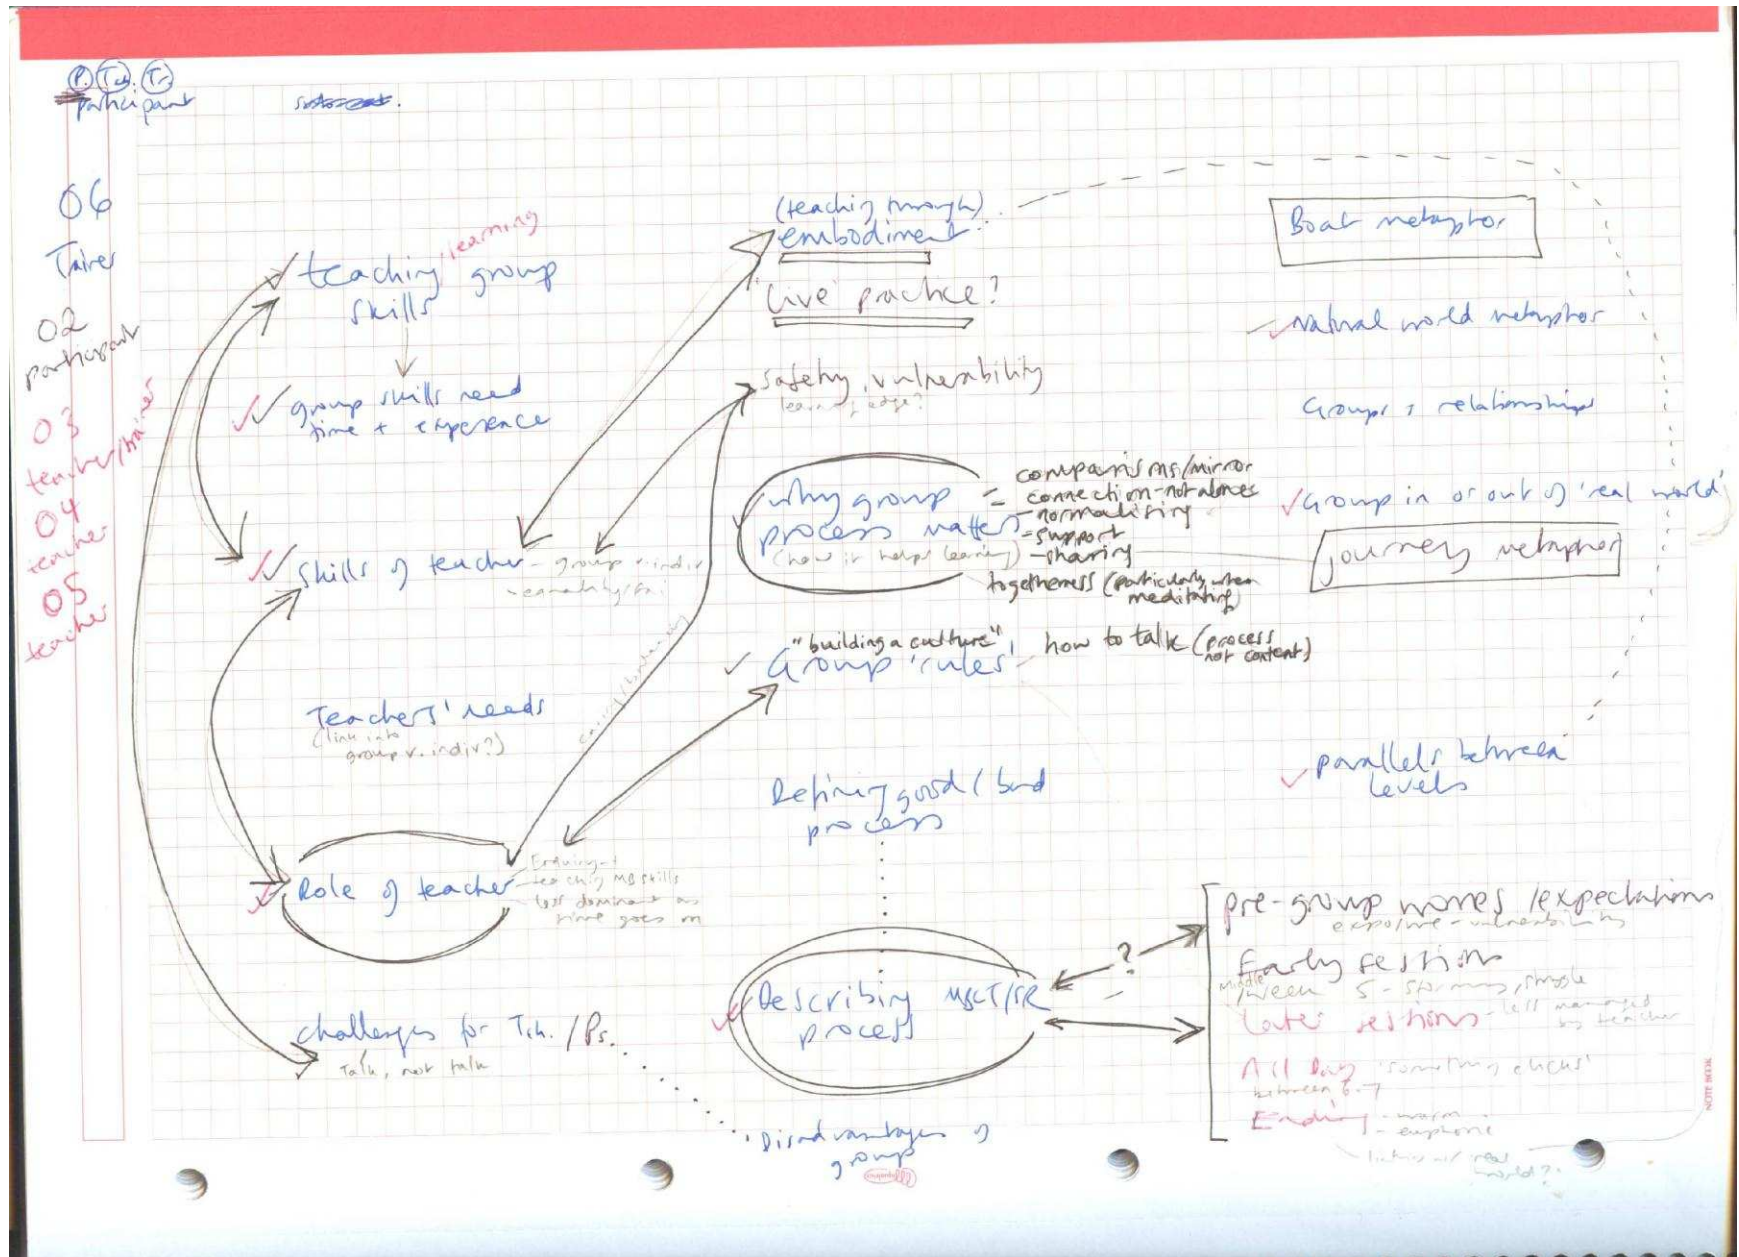 P. Tch. Tr.
participant
06
Trainer
02
participant
03
teacher/trainer
04
teacher
05
teacher
learning
teaching group
skills
group skills need
time + experience
Skills of teacher - group v. indiv
Teachers' needs
(link into
group v. indiv?)
Role of teacher
Enquiry +
teaching MB skills
less dominant as
time goes on
Challenges for Tch. / Ps.
Talk, not talk
(teaching through)
embodiment
'live' practice?
Safety, vulnerability
learning edge?
why group
process matters
(how it helps learning)
comparisons/mirror
connection - not alones
- normalising
- support
- sharing
togetherness (particularly when
meditating)
"building a culture"
Group 'rules'
how to talk (process
not content)
Defining good / bad
process
Describing MBCT/SR
process
?
Disadvantages of
group
Boat metaphor
Natural world metaphor
Groups + relationships
Group in or out of 'real world'
journey metaphor
parallels between
levels
pre-group worries / expectations
exposure - vulnerability
Early sessions
Middle
/week 5 - storming, struggle
Later sessions - less managed
by teacher
All Day 'something clicks'
between 6-7
Ending - warm
- euphoric
real
world?
NOTE BOOK